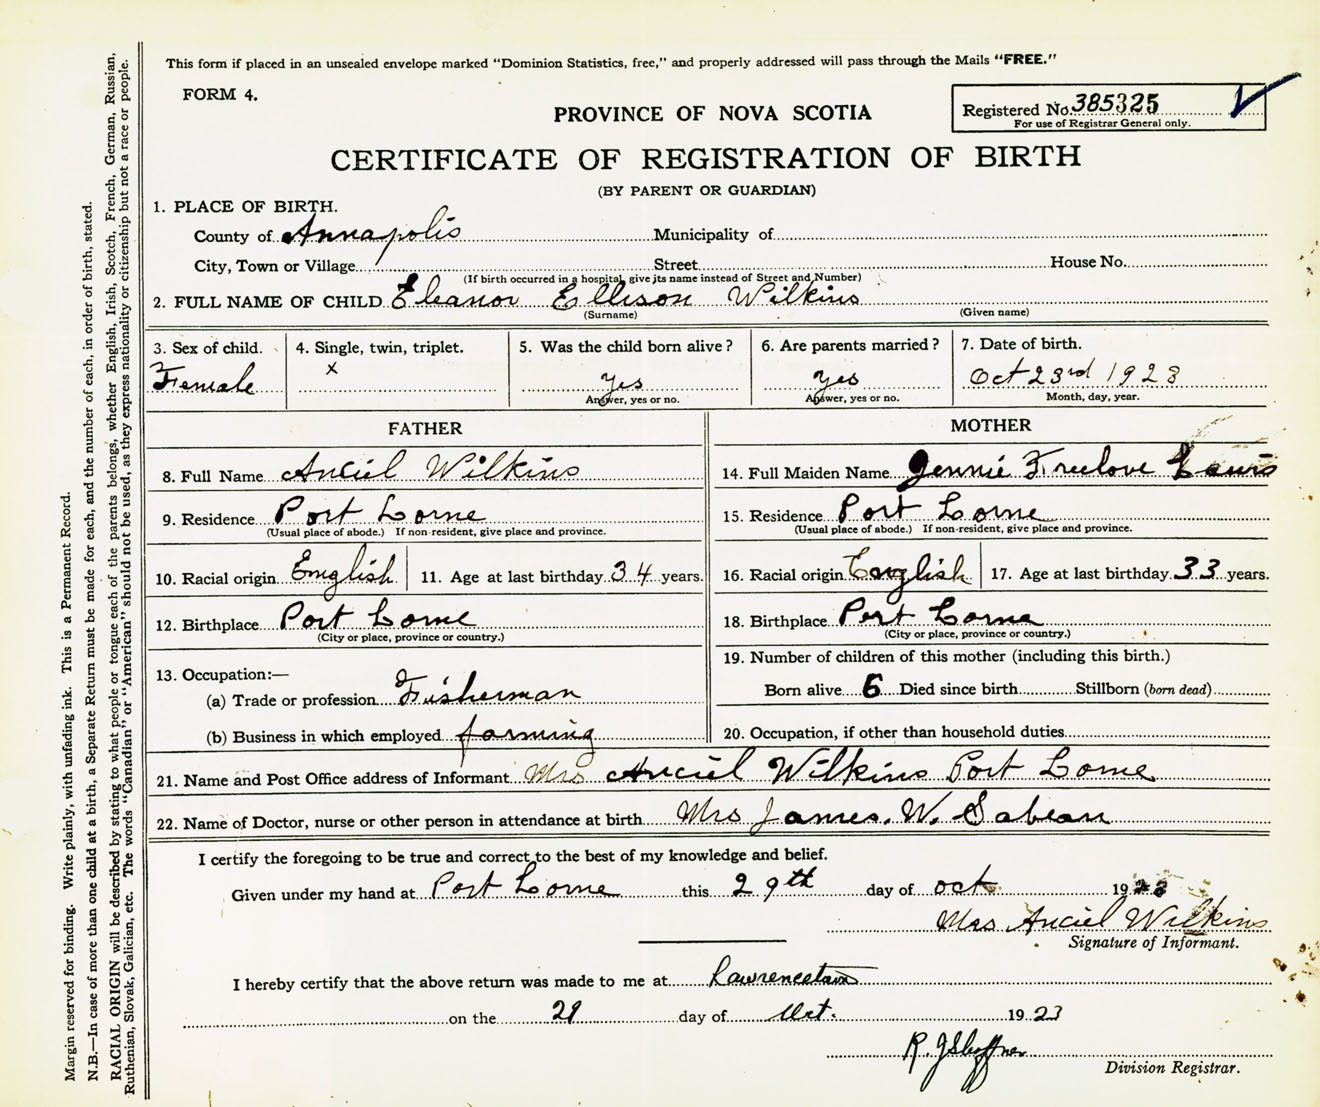 This form if placed in an unsealed envelope marked "Dominion Statistics, free," and properly addressed will pass through the Mails "FREE."
FORM 4.
PROVINCE OF NOVA SCOTIA
Registered No. 385325
For use of Registrar General only.
CERTIFICATE OF REGISTRATION OF BIRTH
(BY PARENT OR GUARDIAN)
1. PLACE OF BIRTH.
County of Annapolis Municipality of
City, Town or Village Street House No.
(If birth occurred in a hospital, give its name instead of Street and Number)
2. FULL NAME OF CHILD Eleanor Ellison Wilkins
(Surname) (Given name)
3. Sex of child. Female
4. Single, twin, triplet. x
5. Was the child born alive? yes
Answer, yes or no.
6. Are parents married? yes
Answer, yes or no.
7. Date of birth. Oct 23rd 1923
Month, day, year.
FATHER
8. Full Name Anciel Wilkins
9. Residence Port Lorne
(Usual place of abode.) If non-resident, give place and province.
10. Racial origin English 11. Age at last birthday 34 years.
12. Birthplace Port Lorne
(City or place, province or country.)
13. Occupation:—
(a) Trade or profession Fisherman
(b) Business in which employed farming
MOTHER
14. Full Maiden Name Jennie Freelove Lewis
15. Residence Port Lorne
(Usual place of abode.) If non-resident, give place and province.
16. Racial origin English 17. Age at last birthday 33 years.
18. Birthplace Port Lorne
(City or place, province or country.)
19. Number of children of this mother (including this birth.)
Born alive 6 Died since birth Stillborn (born dead)
20. Occupation, if other than household duties
21. Name and Post Office address of Informant Mrs Anciel Wilkins Port Lorne
22. Name of Doctor, nurse or other person in attendance at birth Mrs James. W. Sabean
I certify the foregoing to be true and correct to the best of my knowledge and belief.
Given under my hand at Port Lorne this 29th day of oct 1923
Mrs Anciel Wilkins
Signature of Informant.
I hereby certify that the above return was made to me at Lawrencetown
on the 29 day of Oct. 1923
R. J Shaffner
Division Registrar.
Margin reserved for binding. Write plainly, with unfading ink. This is a Permanent Record.
N.B.—In case of more than one child at a birth, a Separate Return must be made for each, and the number of each, in order of birth, stated.
RACIAL ORIGIN will be described by stating to what people or tongue each of the parents belongs, whether English, Irish, Scotch, French, German, Russian,
Ruthenian, Slovak, Galician, etc. The words "Canadian" or "American" should not be used, as they express nationality or citizenship but not a race or people.